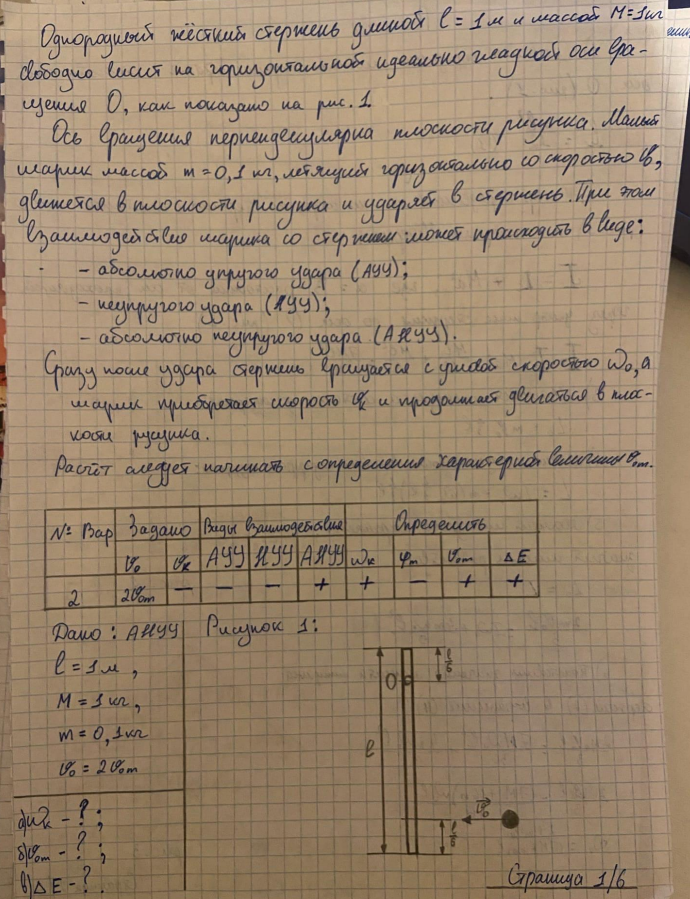 Однородный жёсткий стержень длиной l = 1 м и массой M = 1 кг
свободно висит на горизонтальной идеально гладкой оси вра-
щения O, как показано на рис. 1
Ось вращения перпендекулярна плоскости рисунка. Малый
шарик массой m = 0,1 кг, летящий горизонтально со скоростью v₀,
движется в плоскости рисунка и ударяет в стержень. При этом
взаимодействие шарика со стержнем может происходить в виде:
- абсолютно упругого удара (АУУ);
- неупругого удара (НУУ);
- абсолютно неупругого удара (АНУУ).
Сразу после удара стержень вращается с угловой скоростью ω₀, а
шарик приобретает скорость vₖ и продолжает двигаться в плос-
кости русунка.
Расчёт следует начинать с определения характерной величины v₀ₘ.
№ Вар Задано Виды взаимодействия Определить
v₀ vₖ АУУ НУУ АНУУ ωₖ φₘ v₀ₘ ΔE
2 2v₀ₘ - - - + + - + +
Дано: АНУУ
l = 1 м,
M = 1 кг,
m = 0,1 кг
v₀ = 2v₀ₘ
а) ωₖ - ?;
б) v₀ₘ - ?;
в) ΔE - ?.
Рисунок 1:
l/6
O
l
v₀
l/6
Страница 1/6